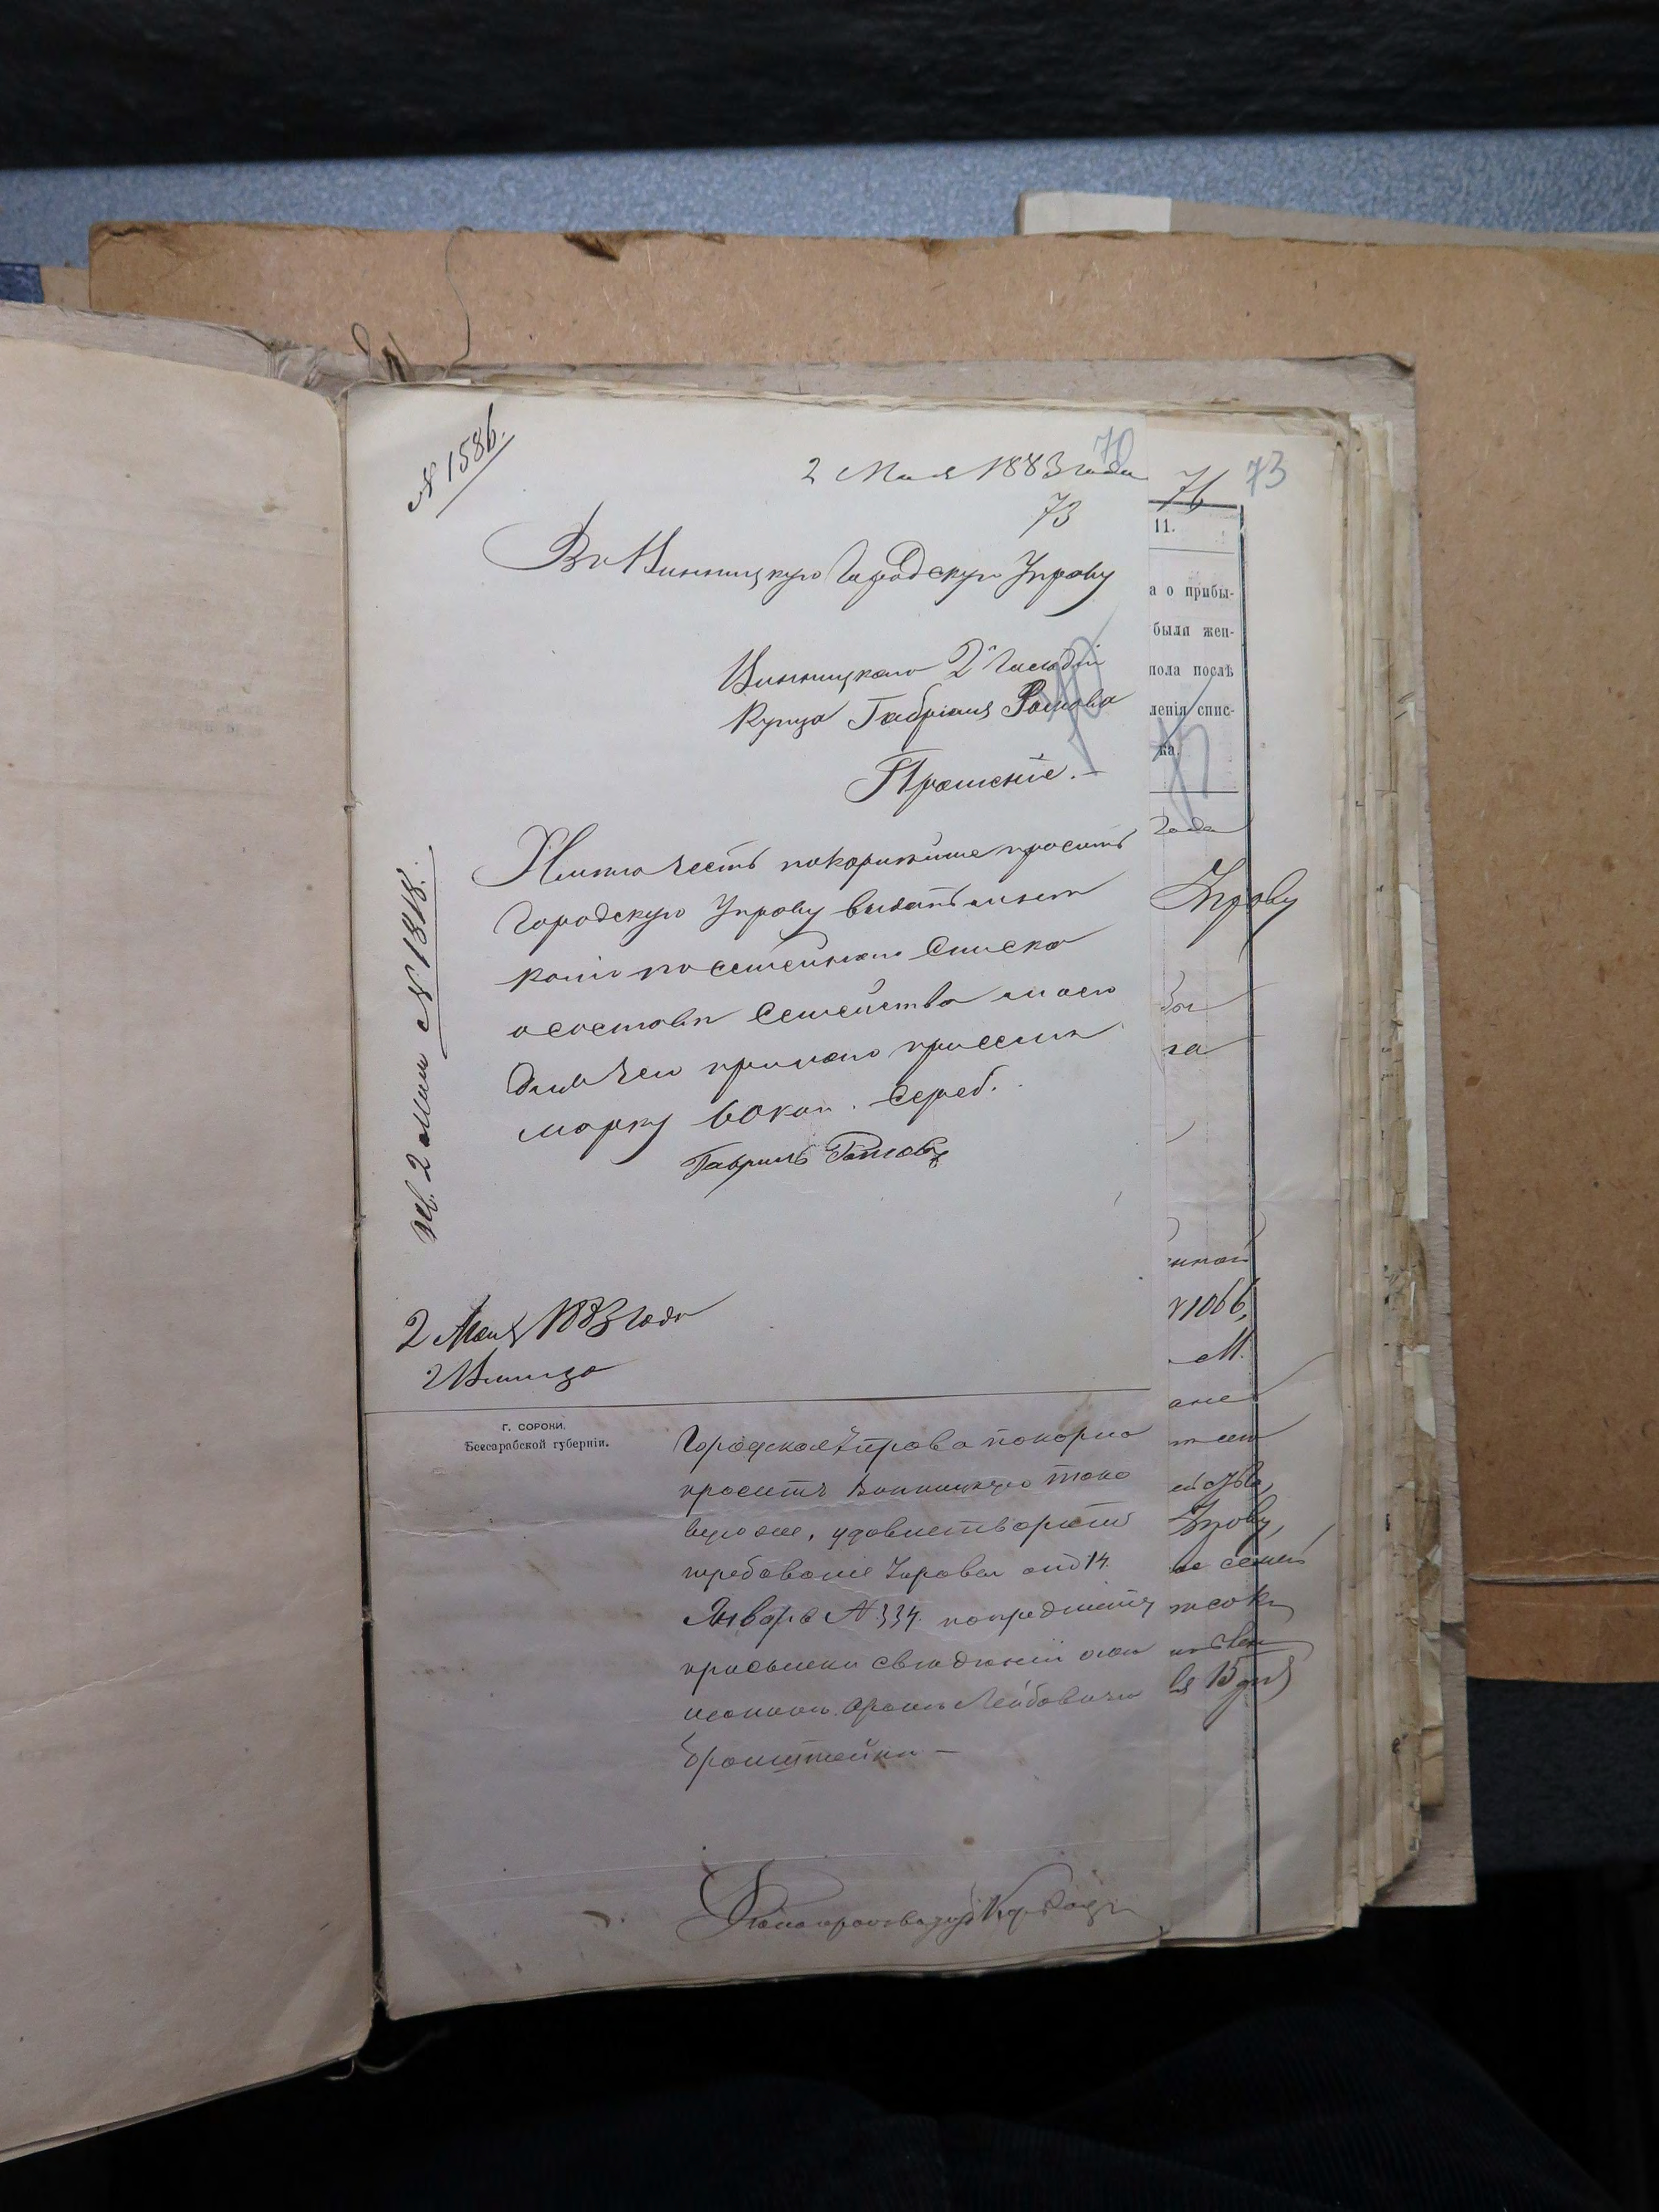 № 1586.
2 Мая 1883 года
70
73
Въ Винницкую Городскую Управу
Винницкаго 2й Гильдіи
Купца Габріиля
Прошеніе.-
Имѣю честь покорнѣйше просить
Городскую Управу выдать мнѣ
копію посемейнаго Списка
о составѣ Семейства моего
для чего при семъ
марку 60 коп. Сереб.
2 Мая 1883 года
г Винница
2 Мая № 1818.
Г. СОРОКИ.
Бессарабской губерніи.
Городская Управа покорно
проситъ Винницкую тако
вую же, удовлетворить
требованіе Управы отъ 14.
Января № 334. по предмету
присылки свѣдѣній
Лейбовичѣ
Бронштейнѣ —
76
73
11.
а о прибы-
были жен-
пола послѣ
ленія спис-
ка.
года
Управу
1066,
М.
Управу,
семей
15 дн